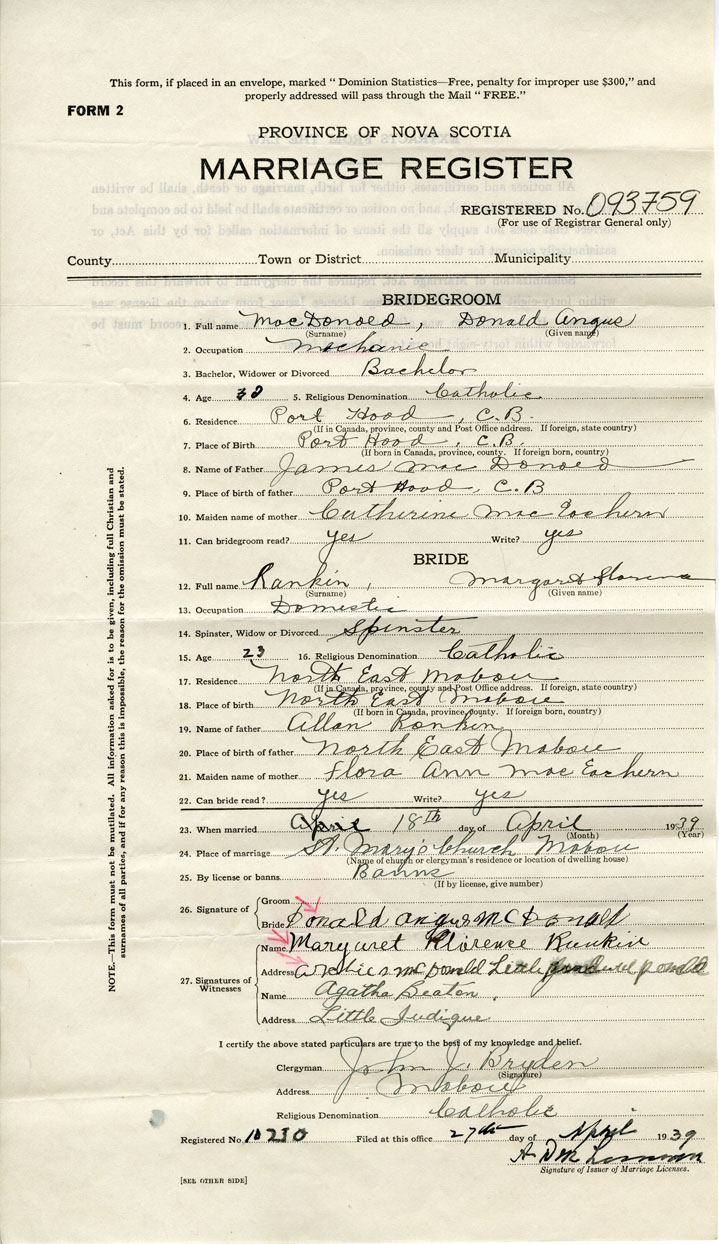 This form, if placed in an envelope, marked " Dominion Statistics—Free, penalty for improper use $300," and
properly addressed will pass through the Mail " FREE."
FORM 2
PROVINCE OF NOVA SCOTIA
MARRIAGE REGISTER
REGISTERED No. 093759
(For use of Registrar General only)
County Town or District Municipality
BRIDEGROOM
1. Full name MacDonald, Donald Angus
(Surname) (Given name)
2. Occupation Mechanic
3. Bachelor, Widower or Divorced Bachelor
4. Age 30 5. Religious Denomination Catholic
6. Residence Port Hood, C.B.
(If in Canada, province, county and Post Office address. If foreign, state country)
7. Place of Birth Port Hood, C.B.
(If born in Canada, province, county. If foreign born, country)
8. Name of Father James Mac Donald
9. Place of birth of father Port Hood, C.B
10. Maiden name of mother Catherine Mac Eachern
11. Can bridegroom read? yes Write? yes
BRIDE
12. Full name Rankin, Margaret Florence
(Surname) (Given name)
13. Occupation Domestic
14. Spinster, Widow or Divorced Spinster
15. Age 23 16. Religious Denomination Catholic
17. Residence North East Mabou
(If in Canada, province, county and Post Office address. If foreign, state country)
18. Place of birth North East Mabou
(If born in Canada, province, county. If foreign born, country)
19. Name of father Allan Rankin
20. Place of birth of father North East Mabou
21. Maiden name of mother Flora Ann Mac Eachern
22. Can bride read? yes Write? yes
23. When married April 18th day of April 1939
(Month) (Year)
24. Place of marriage St. Mary's Church Mabou
(Name of church or clergyman's residence or location of dwelling house)
25. By license or banns Banns
(If by license, give number)
26. Signature of
Groom
Bride Donald Angus McDonald
27. Signatures of Witnesses
Name Margaret Florence Rankin
Address Archie McDonald Little
Name Agatha Beaton
Address Little Judique
I certify the above stated particulars are true to the best of my knowledge and belief.
Clergyman John J. Bryden
(Signature)
Address Mabou
Religious Denomination Catholic
Registered No. 10230 Filed at this office 27th day of April 1939
Signature of Issuer of Marriage Licenses.
[SEE OTHER SIDE]
NOTE.—This form must not be mutilated. All information asked for is to be given, including full Christian and
surnames of all parties, and if for any reason this is impossible, the reason for the omission must be stated.